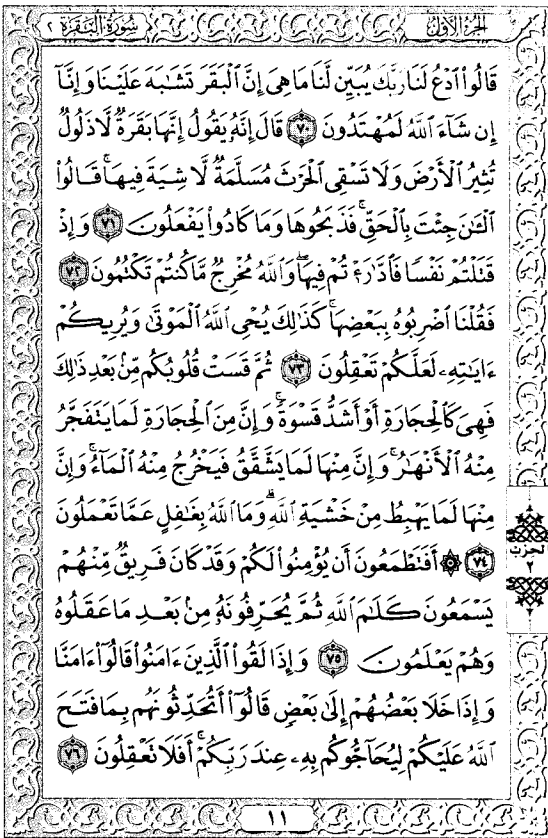 سُورَةُ البَقَرَةِ ٢
الجُزْءُ الأَوَّلُ
قَالُوا۟ ٱدْعُ لَنَا رَبَّكَ يُبَيِّن لَّنَا مَا هِىَ إِنَّ ٱلْبَقَرَ تَشَٰبَهَ عَلَيْنَا وَإِنَّآ
إِن شَآءَ ٱللَّهُ لَمُهْتَدُونَ ٧٠ قَالَ إِنَّهُۥ يَقُولُ إِنَّهَا بَقَرَةٌ لَّا ذَلُولٌ
تُثِيرُ ٱلْأَرْضَ وَلَا تَسْقِى ٱلْحَرْثَ مُسَلَّمَةٌ لَّا شِيَةَ فِيهَا ۚ قَالُوا۟
ٱلْـَٰٔنَ جِئْتَ بِٱلْحَقِّ ۚ فَذَبَحُوهَا وَمَا كَادُوا۟ يَفْعَلُونَ ٧١ وَإِذْ
قَتَلْتُمْ نَفْسًا فَٱدَّٰرَْٰٔتُمْ فِيهَا ۖ وَٱللَّهُ مُخْرِجٌ مَّا كُنتُمْ تَكْتُمُونَ ٧٢
فَقُلْنَا ٱضْرِبُوهُ بِبَعْضِهَا ۚ كَذَٰلِكَ يُحْىِ ٱللَّهُ ٱلْمَوْتَىٰ وَيُرِيكُمْ
ءَايَٰتِهِۦ لَعَلَّكُمْ تَعْقِلُونَ ٧٣ ثُمَّ قَسَتْ قُلُوبُكُم مِّنۢ بَعْدِ ذَٰلِكَ
فَهِىَ كَٱلْحِجَارَةِ أَوْ أَشَدُّ قَسْوَةً ۚ وَإِنَّ مِنَ ٱلْحِجَارَةِ لَمَا يَتَفَجَّرُ
مِنْهُ ٱلْأَنْهَٰرُ ۚ وَإِنَّ مِنْهَا لَمَا يَشَّقَّقُ فَيَخْرُجُ مِنْهُ ٱلْمَآءُ ۚ وَإِنَّ
مِنْهَا لَمَا يَهْبِطُ مِنْ خَشْيَةِ ٱللَّهِ ۗ وَمَا ٱللَّهُ بِغَٰفِلٍ عَمَّا تَعْمَلُونَ
٧٤ ۞ أَفَتَطْمَعُونَ أَن يُؤْمِنُوا۟ لَكُمْ وَقَدْ كَانَ فَرِيقٌ مِّنْهُمْ
يَسْمَعُونَ كَلَٰمَ ٱللَّهِ ثُمَّ يُحَرِّفُونَهُۥ مِنۢ بَعْدِ مَا عَقَلُوهُ
وَهُمْ يَعْلَمُونَ ٧٥ وَإِذَا لَقُوا۟ ٱلَّذِينَ ءَامَنُوا۟ قَالُوٓا۟ ءَامَنَّا
وَإِذَا خَلَا بَعْضُهُمْ إِلَىٰ بَعْضٍ قَالُوٓا۟ أَتُحَدِّثُونَهُم بِمَا فَتَحَ
ٱللَّهُ عَلَيْكُمْ لِيُحَآجُّوكُم بِهِۦ عِندَ رَبِّكُمْ ۚ أَفَلَا تَعْقِلُونَ ٧٦
الحزب
٢
١١